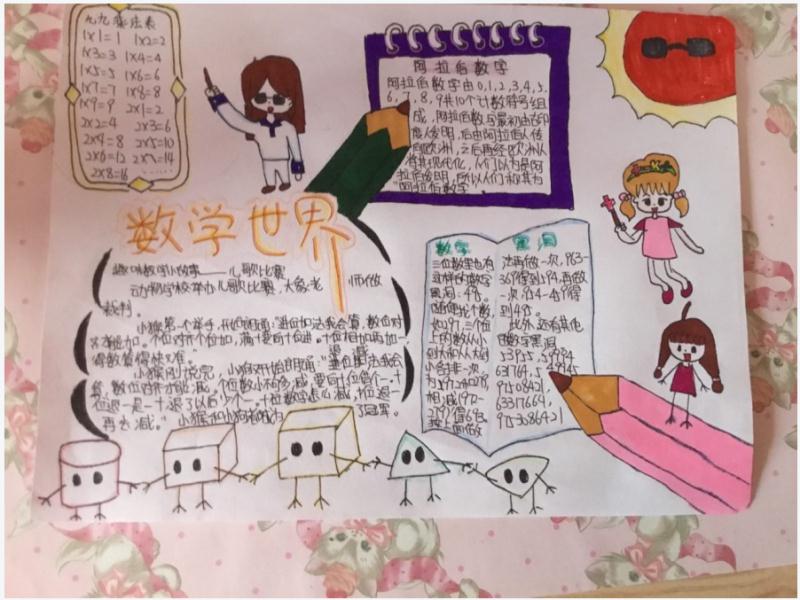 九九乘法表
1×1=1 1×2=2
1×3=3 1×4=4
1×5=5 1×6=6
1×7=7 1×8=8
1×9=9 2×1=2
2×2=4 2×3=6
2×4=8 2×5=10
2×6=12 2×7=14
2×8=16 ……
阿拉伯数字
阿拉伯数字由0,1,2,3,4,5,
6,7,8,9共10个计数符号组
成,阿拉伯数字最初由古印
度人发明,后由阿拉伯人传
欧洲,之后再经欧洲人
现代化,人们以为是阿
拉伯发明,所以人们称其为
"阿拉伯数字
数学世界
趣味数学小故事——儿歌比赛
动物学校举办儿歌比赛,大象老师做
裁判。
小猴第一个举手,开始朗诵:"进位加法我会算,数位对
齐才能加。个位对齐个位加,满十要向十位进。十位相加再加一,
得数算得快又准。"
小猴刚说完,小狗又开始朗诵:"退位减法我会
算,数位对齐才能减。个位数小不够减,要向十位借个一。十
位退一是一十,退了以后少个一。十位数字怎么减,十位退一
再去减。"小猴和小狗 了冠军。
数学 黑洞
三位数里也有
数字
黑洞:495
个数,
如297,三个位
上的数从小
到大和从大到
小各排一次,
为972和279,
相减(972-
279)得693。
按上面做
法再做一次,963-
369得到594,再做
一次,954-459得
到495
此外,还有其他
数字黑洞